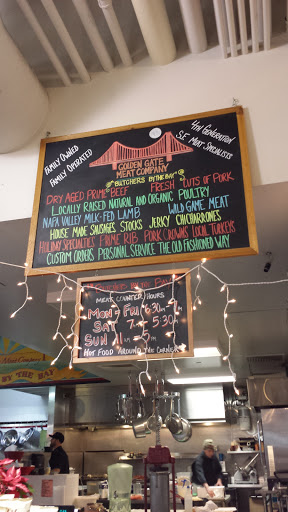 FAMILY OWNED
FAMILY OPERATED
4TH GENERATION
S.F. MEAT SPECIALISTS
GOLDEN GATE
MEAT COMPANY
"BUTCHERS BY THE BAY"
DRY AGED PRIME BEEF FRESH CUTS OF PORK
LOCALLY RAISED NATURAL AND ORGANIC POULTRY
NAPA VALLEY MILK-FED LAMB WILD GAME MEAT
HOUSE MADE SAUSAGES STOCKS JERKY CHICHARRONES
HOLIDAY SPECIALTIES PRIME RIB PORK CROWNS LOCAL TURKEYS
CUSTOM ORDERS PERSONAL SERVICE THE OLD FASHIONED WAY
MEAT COUNTER HOURS
MON - FRI 6:30AM
SAT 7 5:30
SUN
HOT FOOD AROUND THE CORNER
BY THE BAY